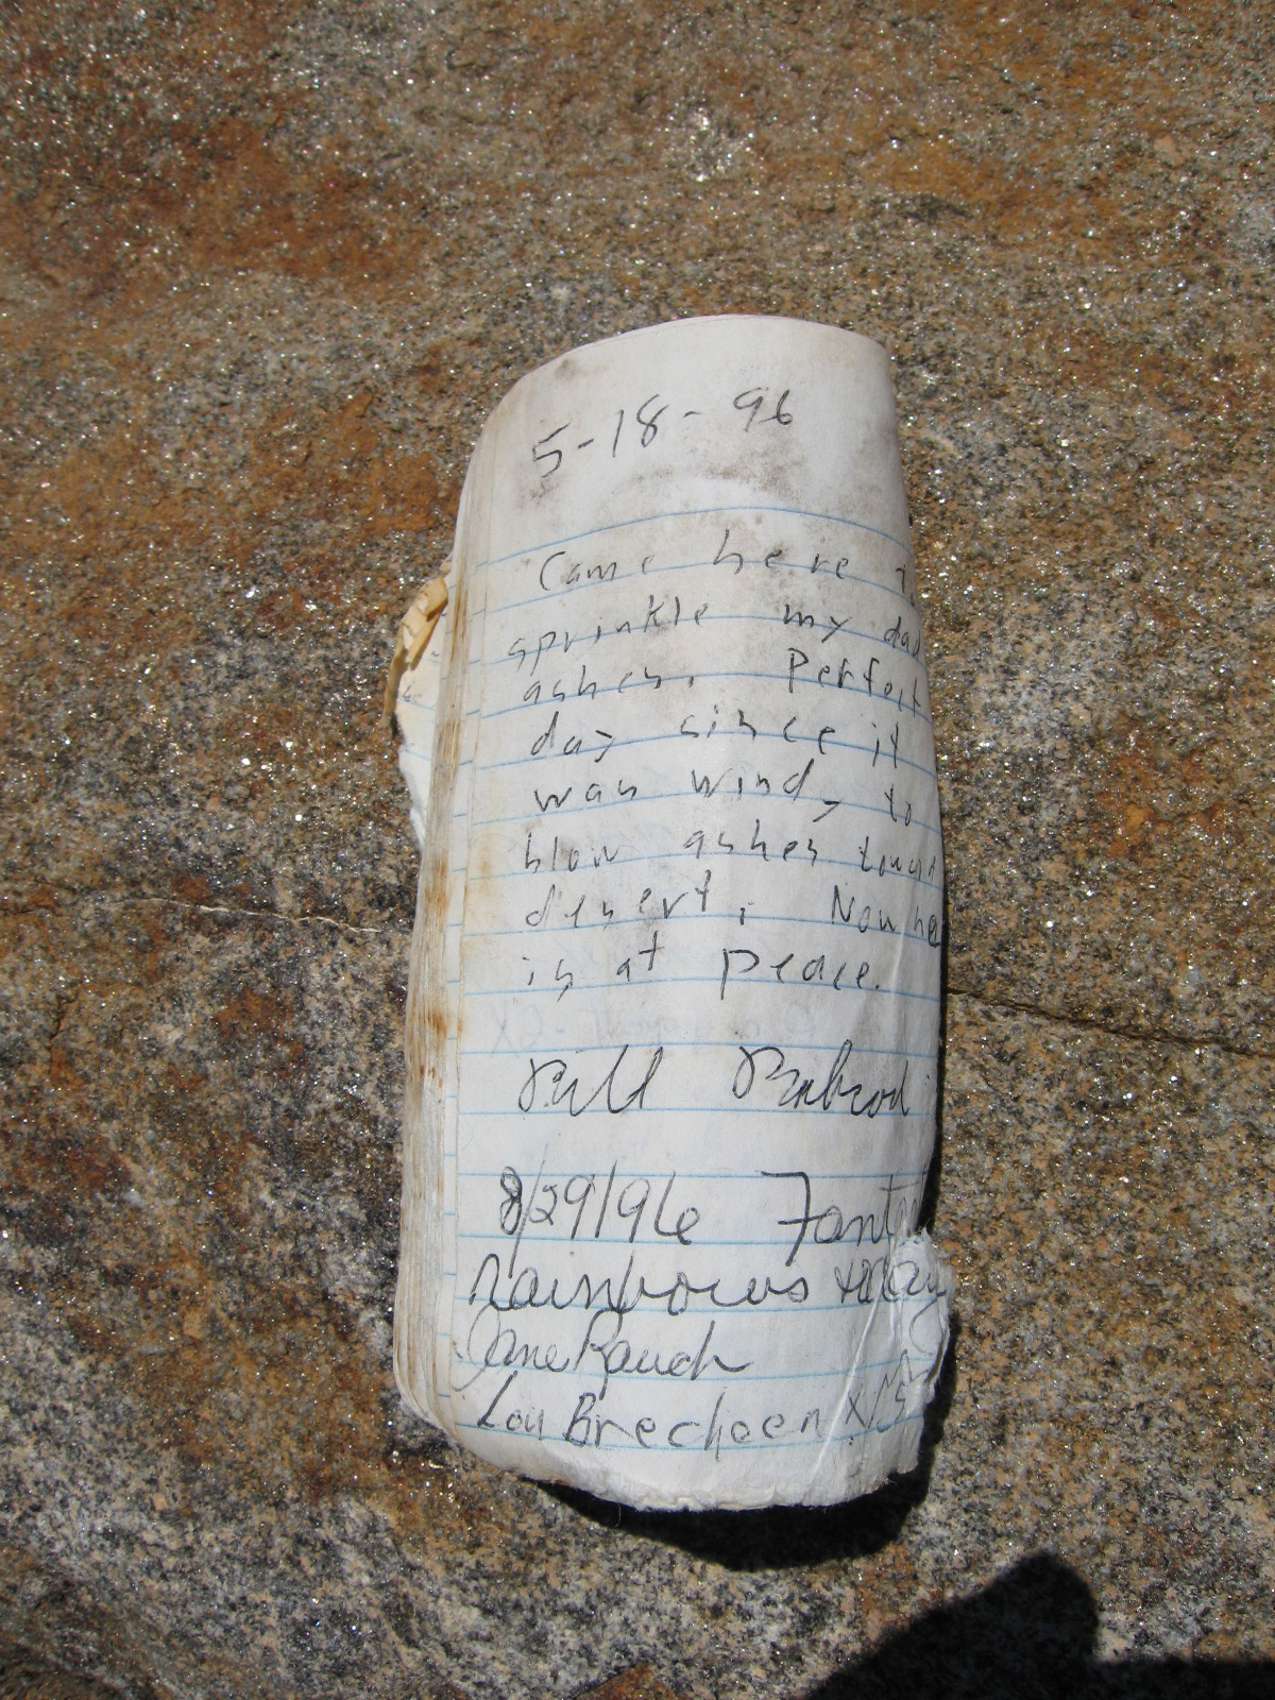 5-18-96
Came here
sprinkle my dad
ashes. Perfect
day since it
was windy to
blow ashes
desert. Now he
is at peace.
Bill
8/29/96
Rainbows
Jane Rauch
Lou Brecheen